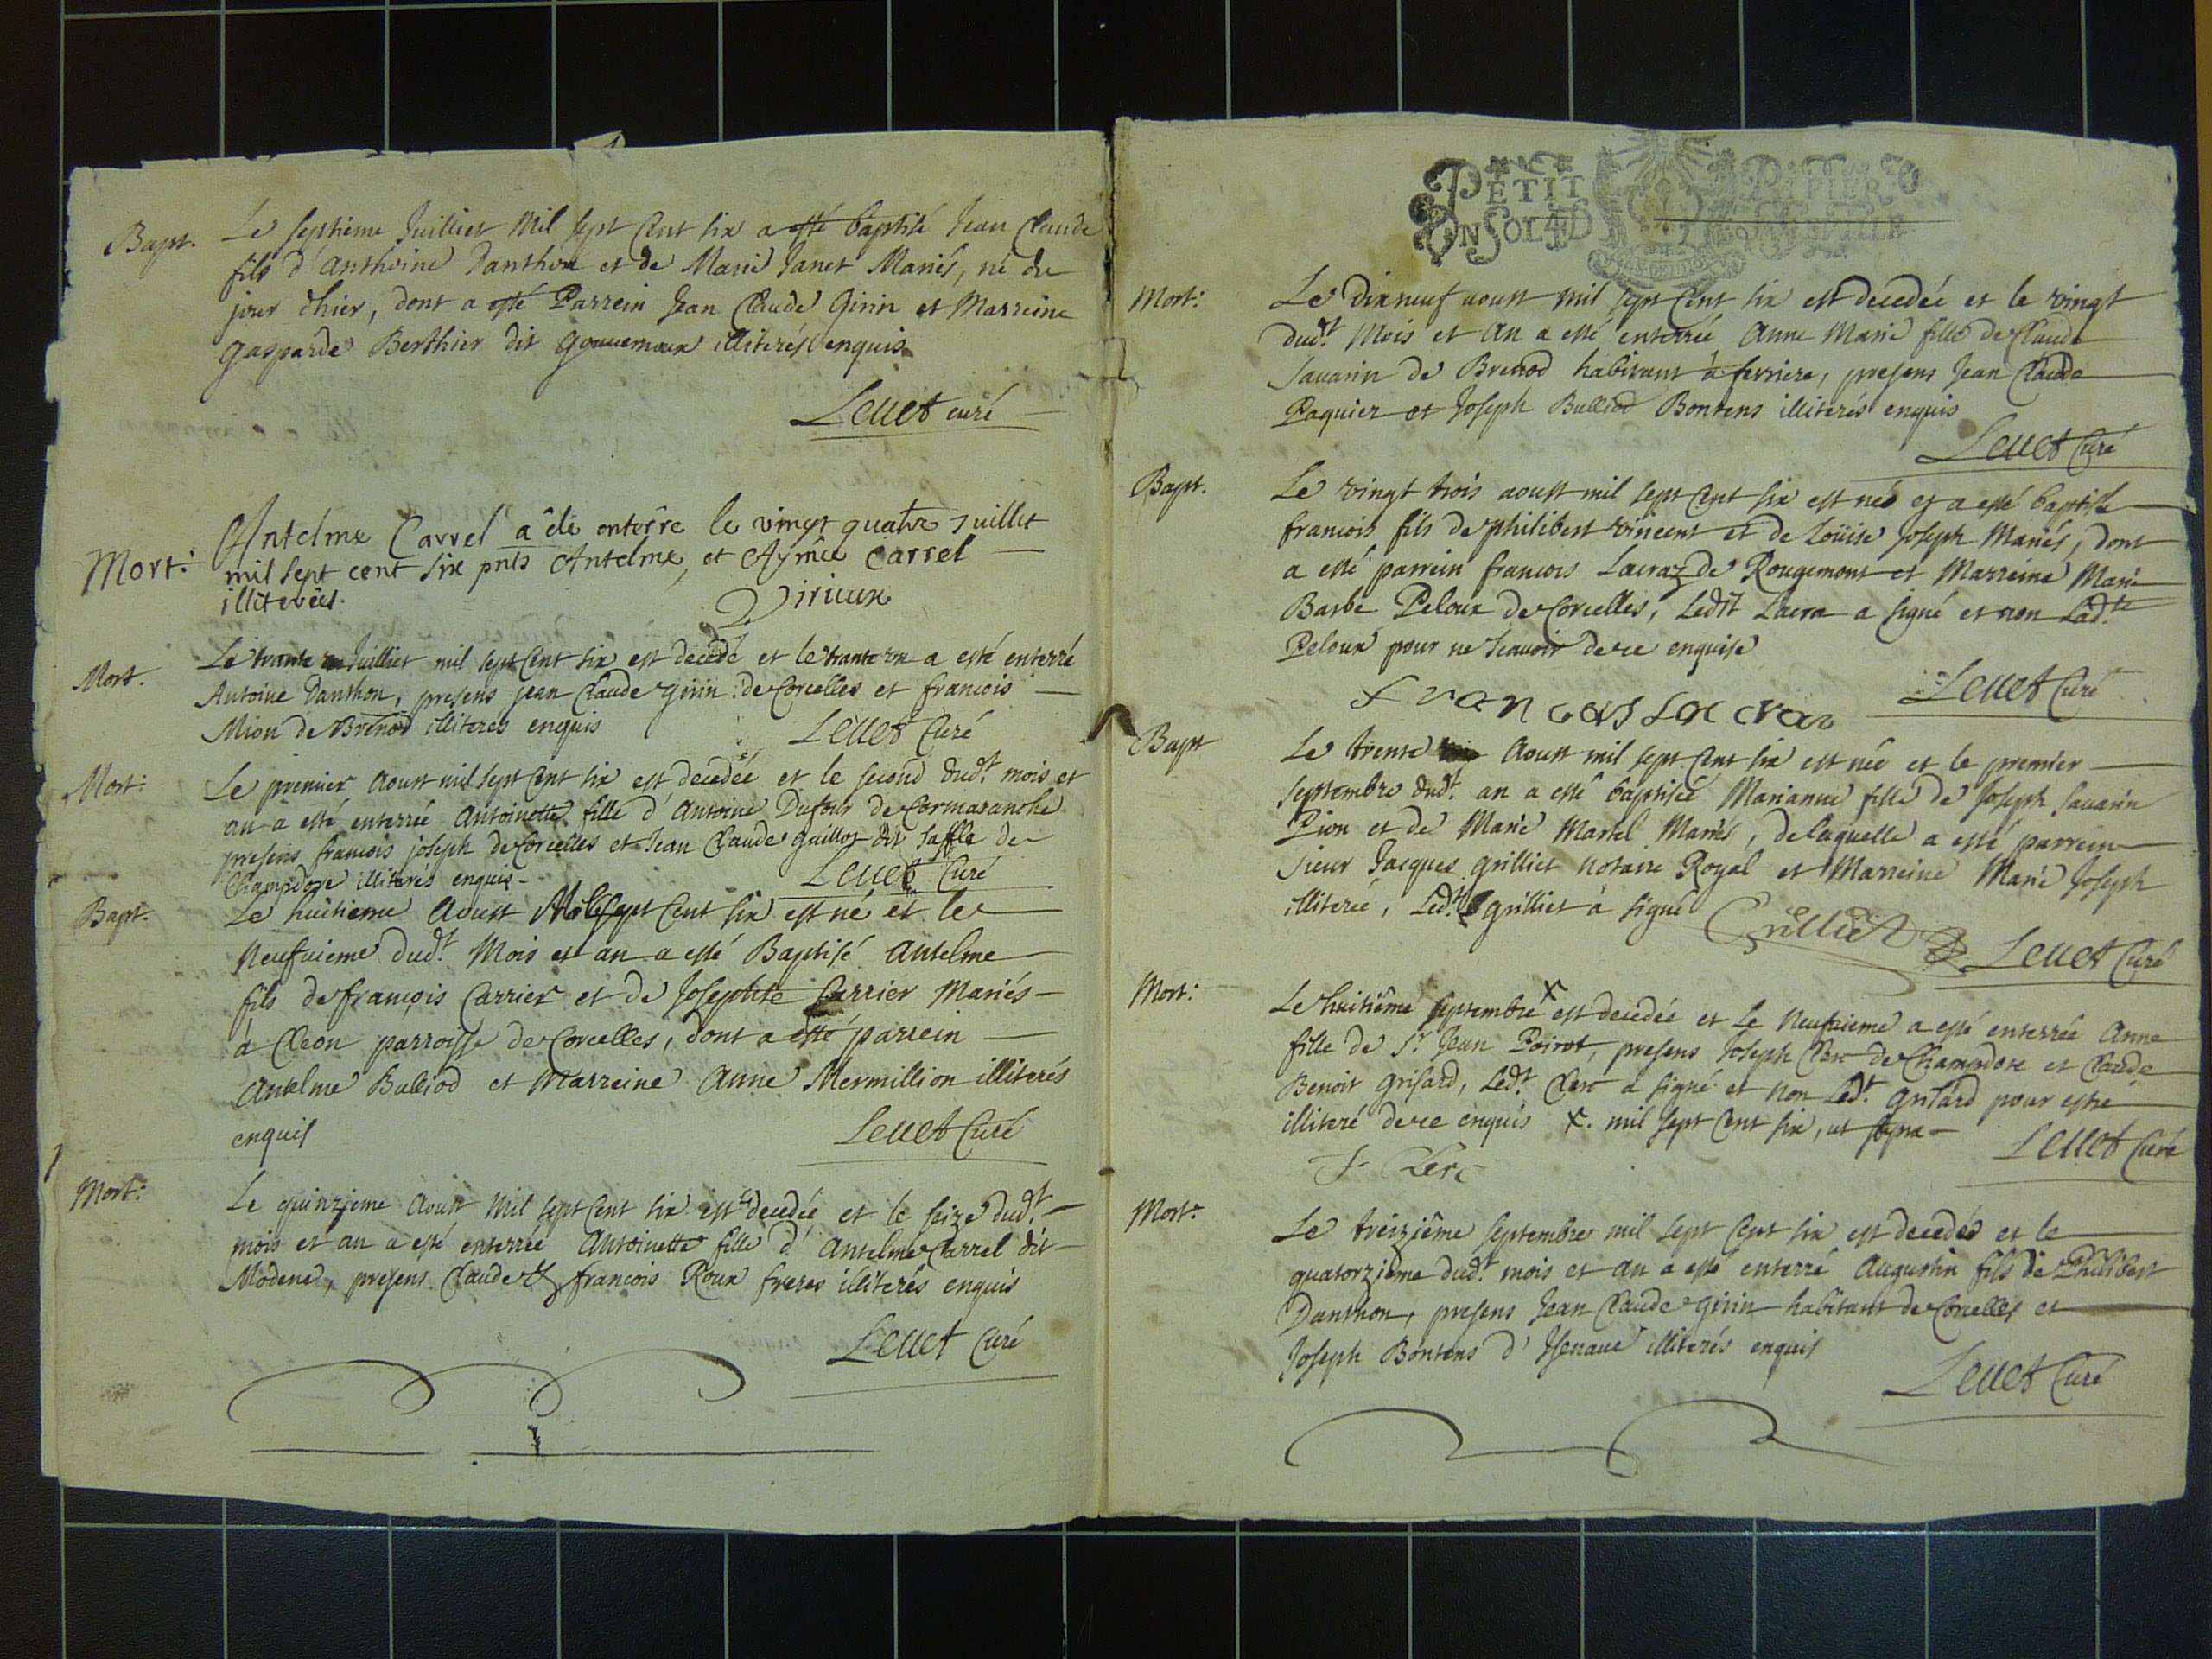 Bapt. Le septieme Juilliet mil sept Cent six a esté baptisé Jean Claude
fils d'Anthoine Danthon et de Marie Janet Mariés, né du
jour d'hier, dont a esté Parrein Jean Claude Girin et Marreine
Gasparde Berthier dit illiterés enquis
Levet curé
Antelme Carrel a été enterre le vingt quatre Juillet
Mort: mil sept cent six pnts Antelme, et Aymée Carrel
illiterées. Virieux
Le trante Juilliet mil sept Cent six est decedé et le trante un a esté enterré
Mort. Antoine Danthon, presens jean Claude girin de Corcelles et francois
Mion de Brenod illiteres enquis Levet Curé
Mort: Le premier Aoust mil sept Cent six est decedée et le second dud.t mois et
an a esté enterrée Antoinette fille d'Antoine Dufour de Cormaranche
presens francois joseph de Corcelles et Jean Claude guillot dit Jaffle de
Champdore illiterés enquis - Levet Curé
Bapt. Le huitieme Aoust Mil Sept Cent six est né et le
Neufvieme dud.t Mois et an a esté Baptisé Antelme
fils de françois Carrier et de Josephte Carrier Mariés
à Cleon parroisse de Corcelles, dont a esté parrein
Antelme Bulliod et Marreine Anne Mermillion illiterés
enquis Levet Curé
Mort: Le quinzieme Aoust Mil sept Cent six est decedée et le seize dud.t
mois et an a esté enterrée Antoinette fille d'Antelme Carrel dit
Modena, presens Claude & francois Roux freres illiterés enquis
Levet Curé
PETIT PAPIER
UN SOL 4 D
Mort: Le Dixneuf aoust mil sept Cent six est decedée et le vingt
dud.t Mois et An a esté enterrée Anne Marie fille de Claude
Savarin de Brenod habitant à ferriere, presens Jean Claude
Paquier et Joseph Bulliod Bontens illiterés enquis
Levet Curé
Bapt. Le vingt trois aoust mil sept Cent six est né et a esté baptisé
francois fils de philibert vincent et de Loüise Joseph Mariés, dont
a esté parrein francois Lacraz de Rougemont et Marreine Marie
Barbe Peloux de Corcelles, Ledit Lacra a signé et non Lad.te
Peloux pour ne scavoir de ce enquise
francois Lacraz Levet Curé
Bapt Le trente Aoust mil sept Cent six est née et le premier
septembre dud.t an a esté baptisée Marianne fille de Joseph Savarin
Pion et de Marie Martel Mariés, de laquelle a esté parrein
sieur Jacques grilliet Notaire Royal et Marreine Marie Joseph
illiterée, Led.t grilliet à signé Grilliet Levet Curé
Mort: Le huitiême septembre x est decedée et Le Neufvieme a esté enterrée Anne
fille de S.r Jean Poirot, presens Joseph Clerc de Champdore et Claude
Benoit grisard, Led.t Clerc a signé et non Led.t grisard pour estre
illiteré de ce enquis x. mil sept Cent six, ut supra - Levet Curé
J. Clerc
Mort: Le treiziême septembre mil sept Cent six est decedés et le
quatorziême dud.t mois et an a esté enterré Augustin fils de Philibert
Danthon, presens Jean Claude girin habitant de Corcelles et
Joseph Bontens d'Isenave illiterés enquis
Levet Curé